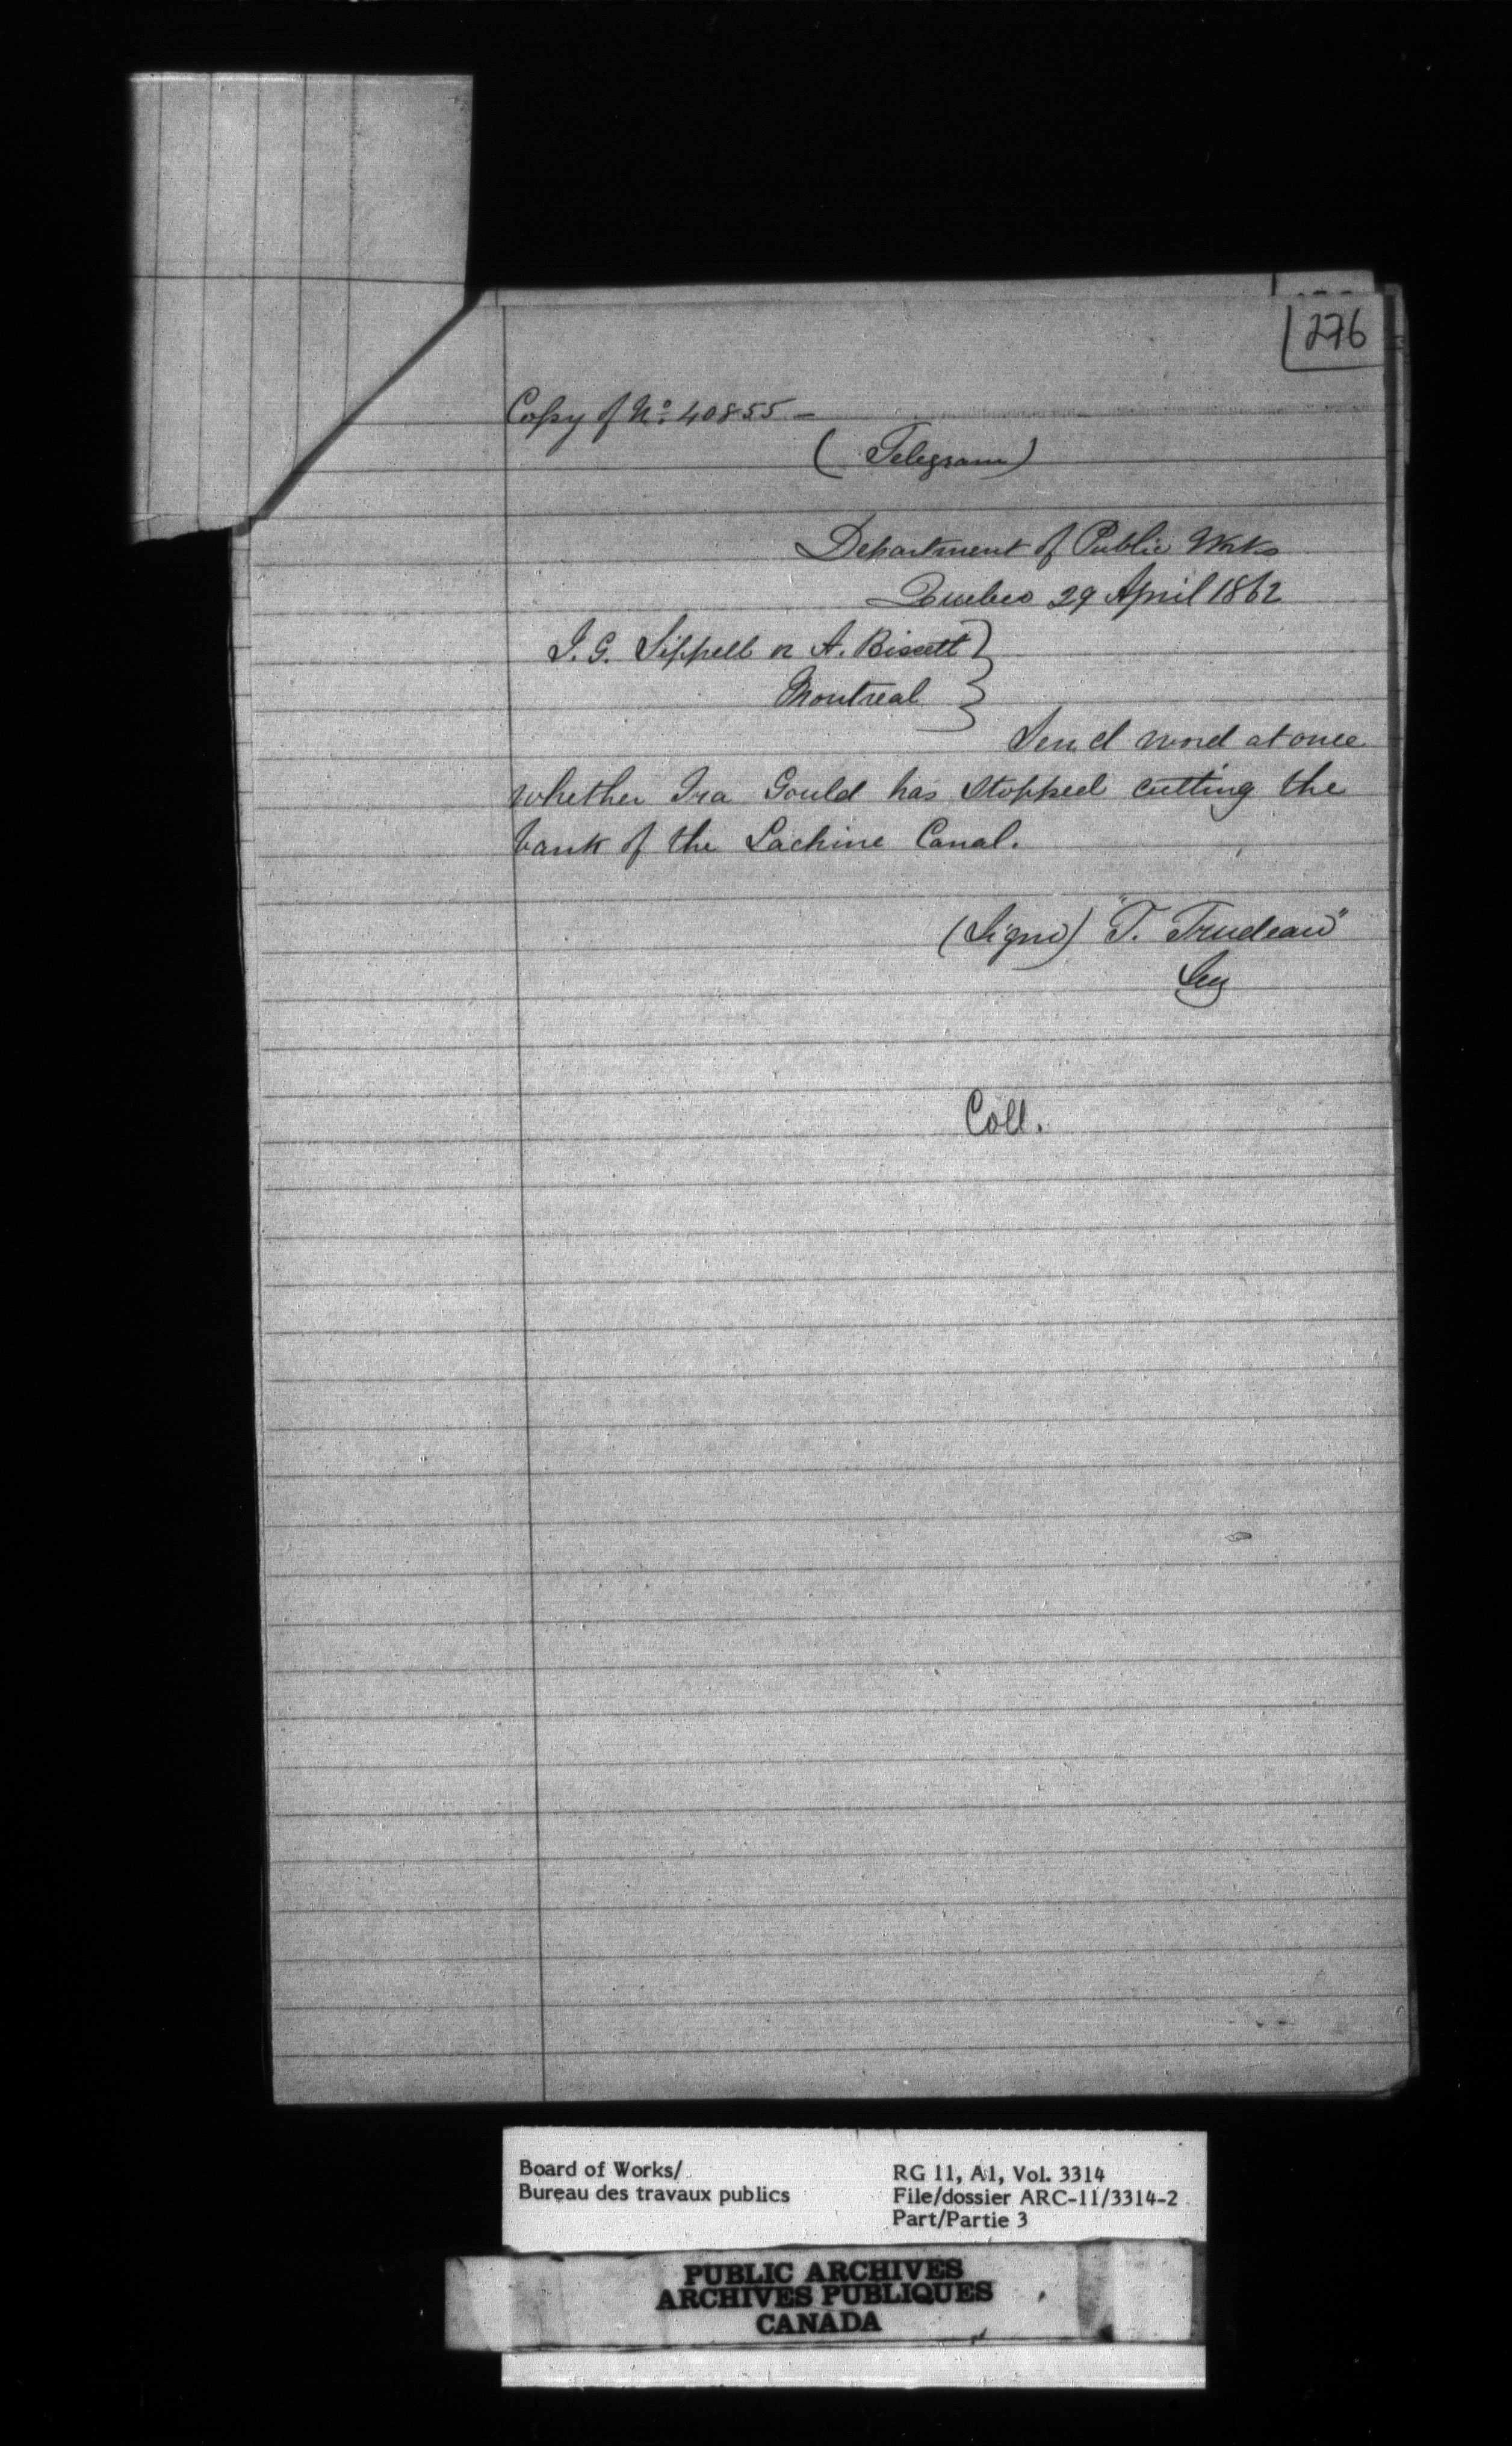 276
Copy of No. 40855 —
(Telegram)
Department of Public Works
Quebec 29 April 1862
J. G. Sippell or A. Bissett
Montreal
Send word at once
whether Ira Gould has stopped cutting the
bank of the Lachine Canal.
(Signd) "T. Trudeau"
Secy
Coll.
Board of Works/
Bureau des travaux publics
RG 11, A1, Vol. 3314
File/dossier ARC-11/3314-2
Part/Partie 3
PUBLIC ARCHIVES
ARCHIVES PUBLIQUES
CANADA